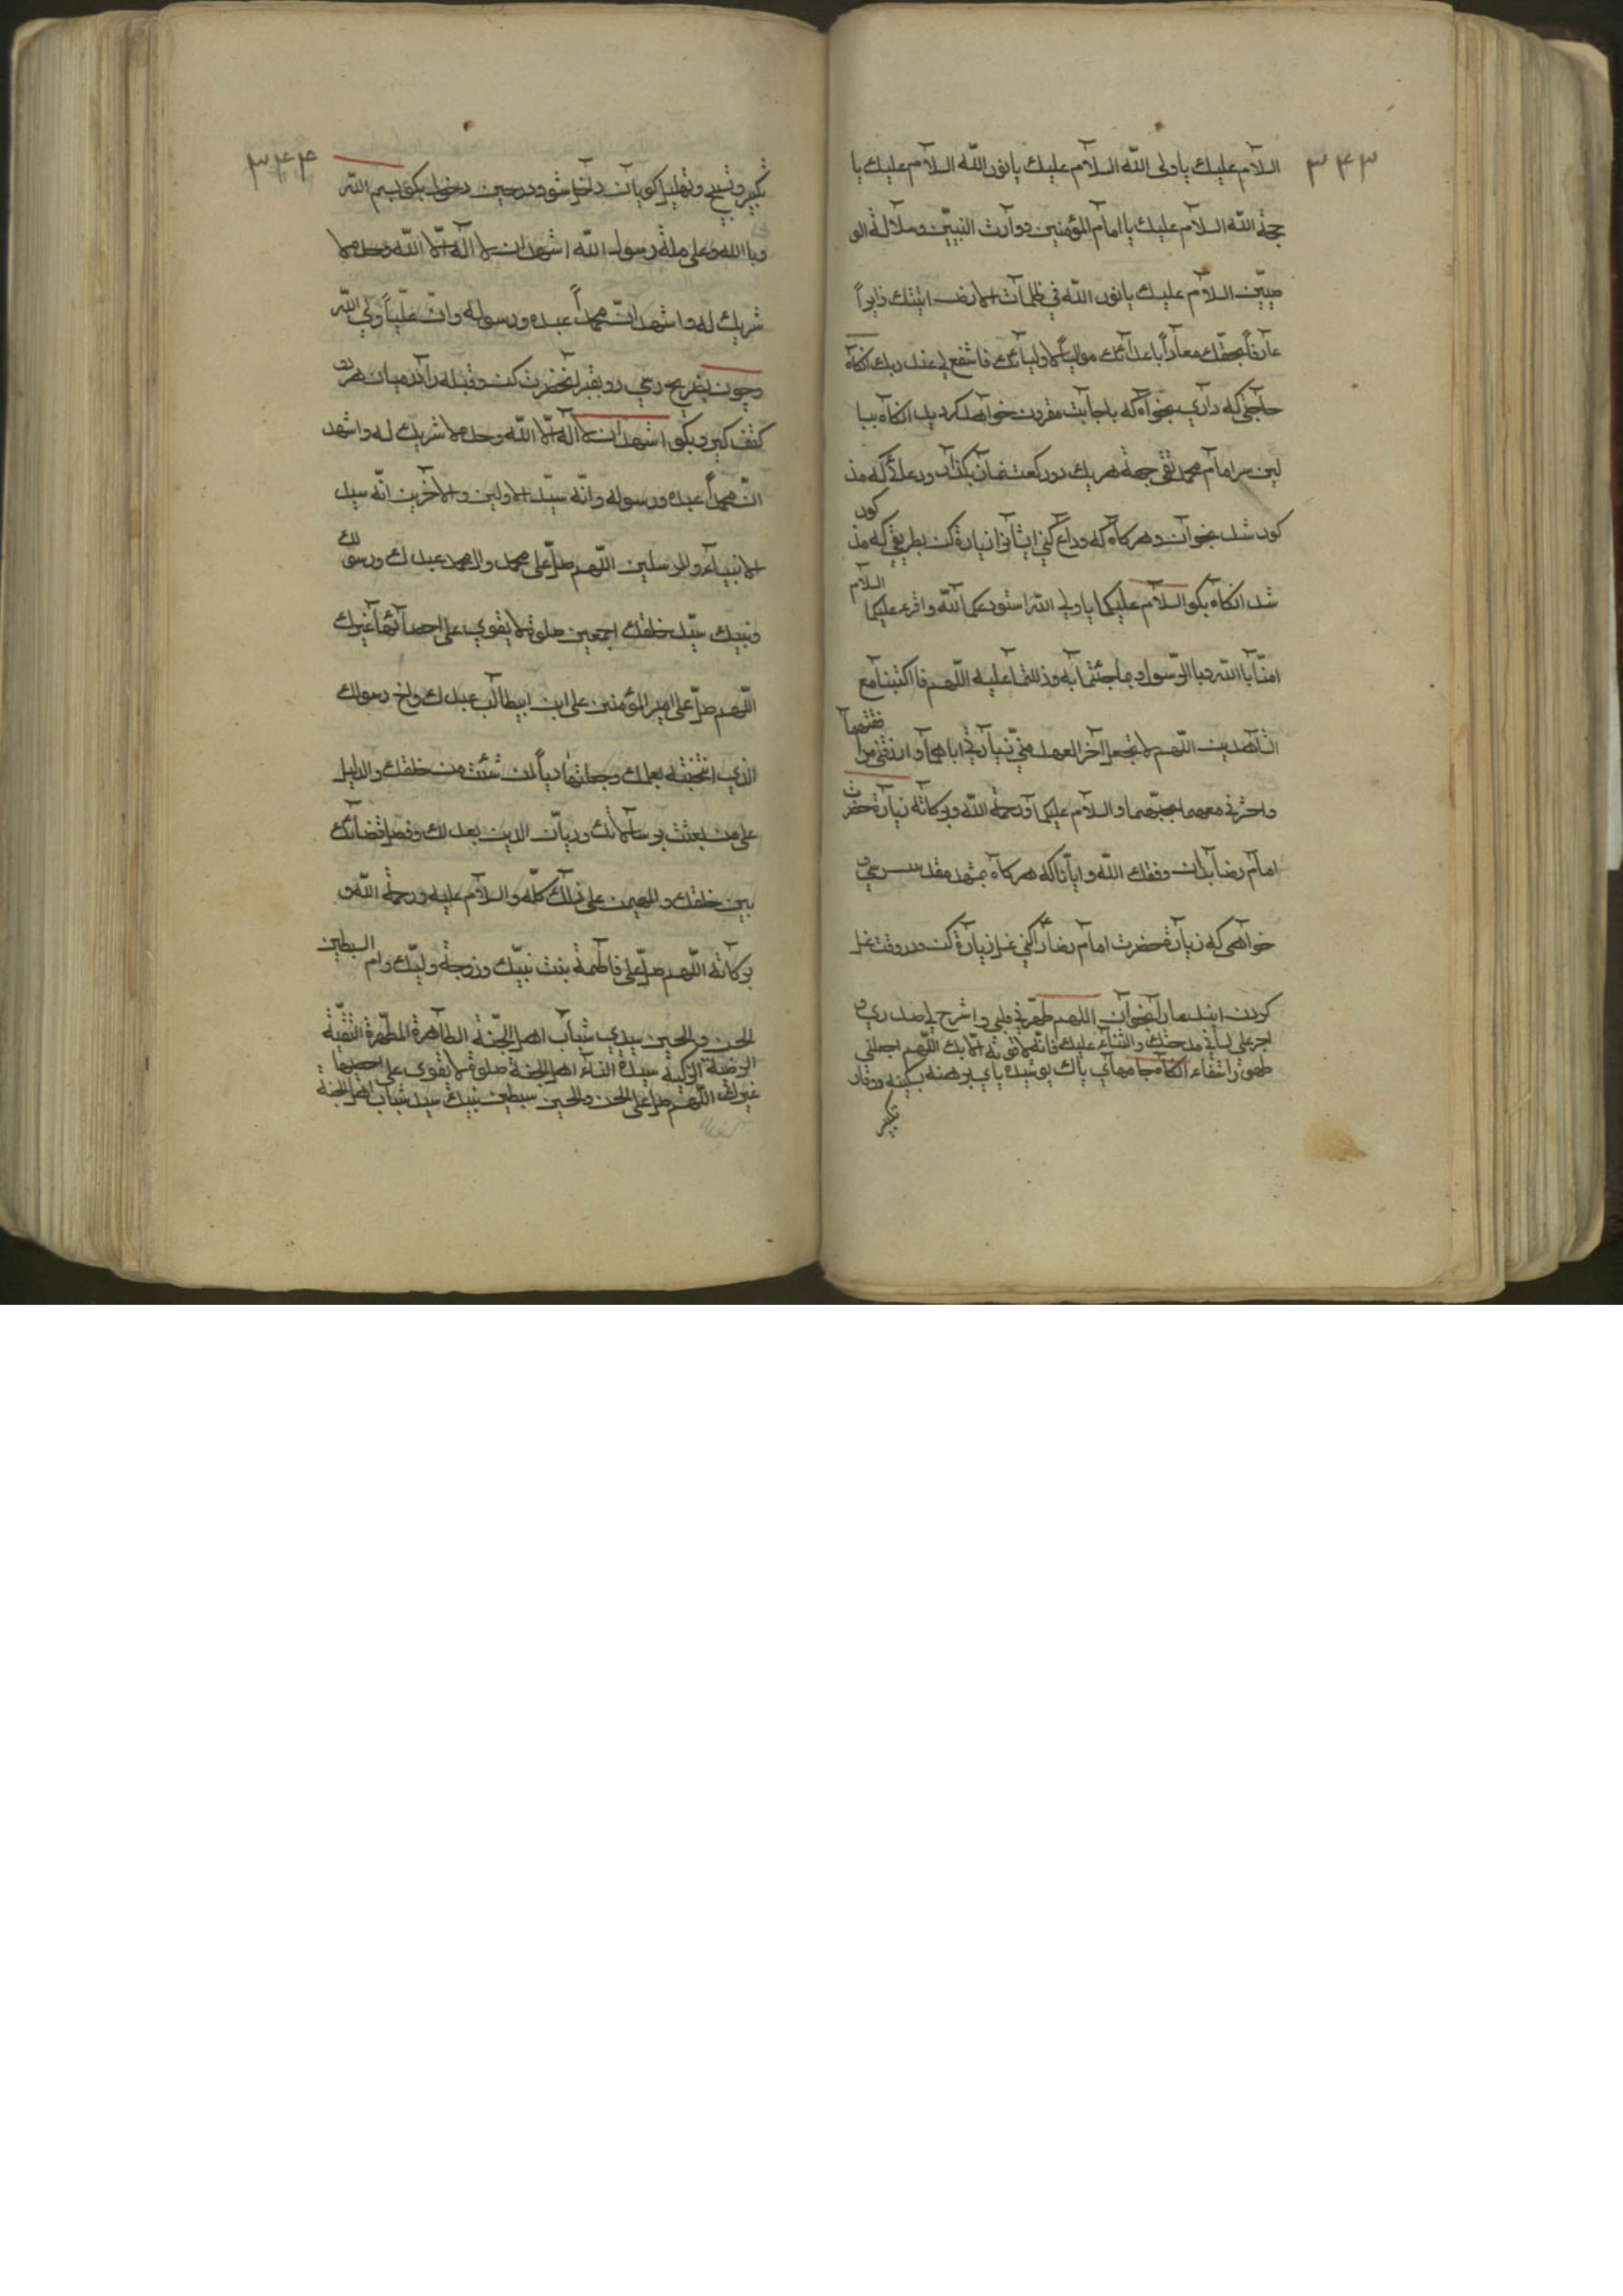 ۳۴۳
السلام عليك يا ولى الله السلام عليك يا نور الله السلام عليك يا
حجة الله السلام عليك يا امام المؤمنين ووارث النبيّين وسلالة الو
صيّين السلام عليك يا نور الله في ظلمات الارض اتيتك زايراً
عارفاً بحقّك معادياً باعدآئك موالياً لاوليآئك فاشفع لي عند ربك انكاه
حاجتى كه داري بخواه كه باجابت مقرون خواهد كرديد انكاه ببا
لين سر امام محمد تقي جهة هريك دو ركعت نماز بكذار ودعائى كه مذ
كور شد بخوان وهركاه كه وداع كني ايشانرا زيارة كن بطريقي كه مذ كور
شد انكاه بكو السلام عليكما يا ولي الله استودعكما الله واقرء عليكما السلام
امنّا باالله وباالرّسول وبما جئتما به ودللتما عليه اللّهم فاكتبنا مع
الشاهدين اللّهم لا تجعل آخر العهد منّي زيارتي اياهما وارزقني مرا فقتهما
واحشرني معهما بحبّهما والسلام عليكما ورحمة الله وبركاته زيارة حضرت
امام رضا بدان وفقك الله وايانا كه هركاه بمشهد مقدس رسي و
خواهى كه زيارة حضرت امام رضا را كني غسل زيارة كن ودر وقت غسل
كردن اين دعا را بخوان اللهم طهّرني قلبى واشرح لي صدري و
اجر على لساني مدحتك والثناء عليك فانّه لا قوّة الّا بك اللّهم اجعلني
طهورا شفاء انكاه جامهاي پاك پوشيده پاي برهنه بسكينه ووقار
تكبير
۳۴۴
تكبير وتسبيح وتهليل كويان داخل شو ودر حين دخول بكو بسم الله
وبا الله وعلى ملة رسول الله اشهد ان لا اله الّا الله وحده لا
شريك له واشهد انّ محمداً عبده ورسوله وانّ عليّاً ولي الله
وچون بضريح رسي رو بقبر آنحضرت كن وقبله را در ميان هردو
كتف كير وبكو اشهد ان لا اله الّا الله وحده لا شريك له واشهد
انّ محمداً عبده ورسوله وانّه سيّد الاولين والآخرين انّه سيد
الانبيآء والمرسلين اللّهم صلّ على محمد وال محمد عبدك ورسولك
ونبيك سيّد خلقك اجمعين صلوة لا يقوي على احصآئها غيرك
اللّهم صلّ على امير المؤمنين على ابن ابيطالب عبدك واخ رسولك
الذي انتجبته بعلمك وجعلته هادياً لمن شئت من خلقك والدليل
على من بعثت برسالاتك وديان الدين بعدلك وفصل قضآئك
بين خلقك والمهيمن على ذلك كلّه والسلام عليه ورحمة الله و
بركاته اللّهم صلّ على فاطمة بنت نبيّك وزوجة وليّك وام السبطين
الحسن والحسين سيدي شباب اهل الجنّة الطاهرة المطهّرة التقيّة
الرضية الزكية سيدة النسآء اهل الجنة صلوة لا يقوى على احصيها
غيرك اللّهم صلّ على الحسن والحسين سبطين نبيك سيد شباب اهل الجنة